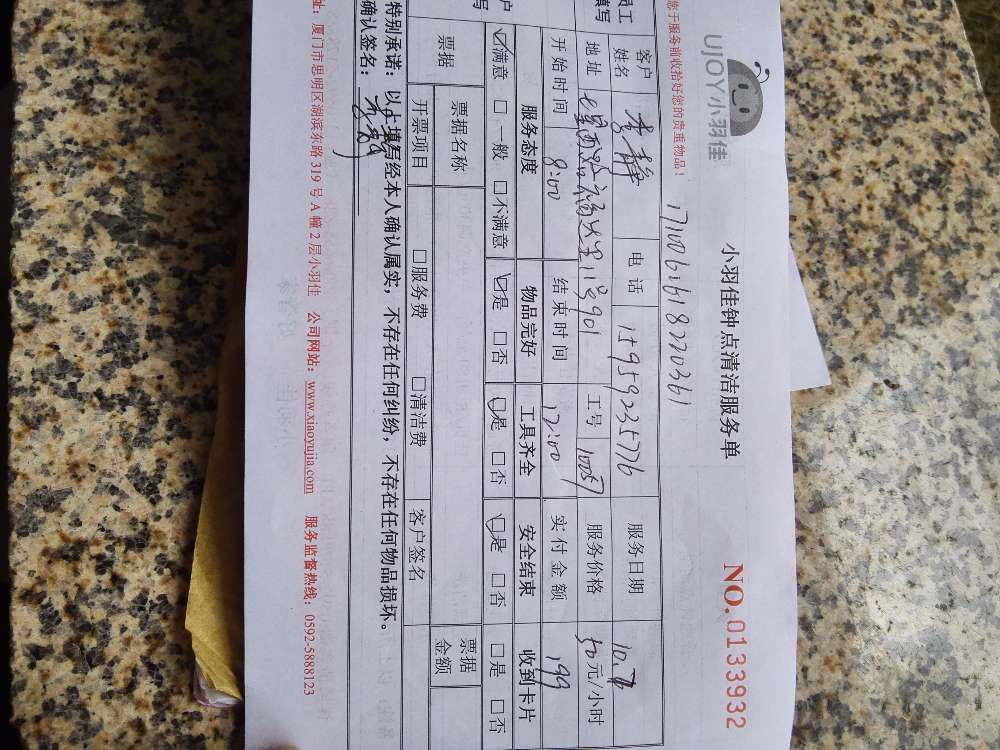 UJOY小羽佳
小羽佳钟点清洁服务单
NO.0133932
您于服务前收拾好您的贵重物品！
1710061618220361
员工
填写
客户
姓名
李静
电话
15959235776
服务日期
10.7
地址
七星西路福达里11号901
工号
10057
服务价格
50元/小时
开始时间
8:00
结束时间
12:00
实付金额
199
户
写
服务态度
物品完好
工具齐全
安全结束
收到卡片
☑满意 □一般 □不满意
☑是 □否
☑是 □否
☑是 □否
□是 □否
票据
票据名称
票据
金额
开票项目
□服务费 □清洁费
客户签名
特别承诺：以上填写经本人确认属实，不存在任何纠纷，不存在任何物品损坏。
确认签名：
址：厦门市思明区湖滨东路319号A幢2层小羽佳 公司网站：www.xiaoyujia.com 服务监督热线：0592-5888123